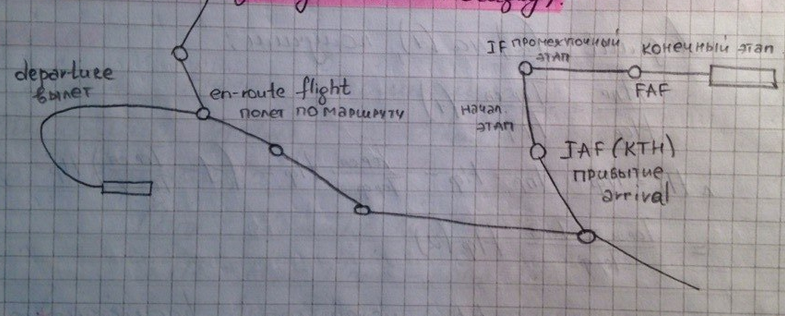 departure
вылет
en-route flight
полет по маршруту
IF промежуточный
этап
конечный этап
FAF
начал.
этап
IAF (КТН)
прибытие
arrival